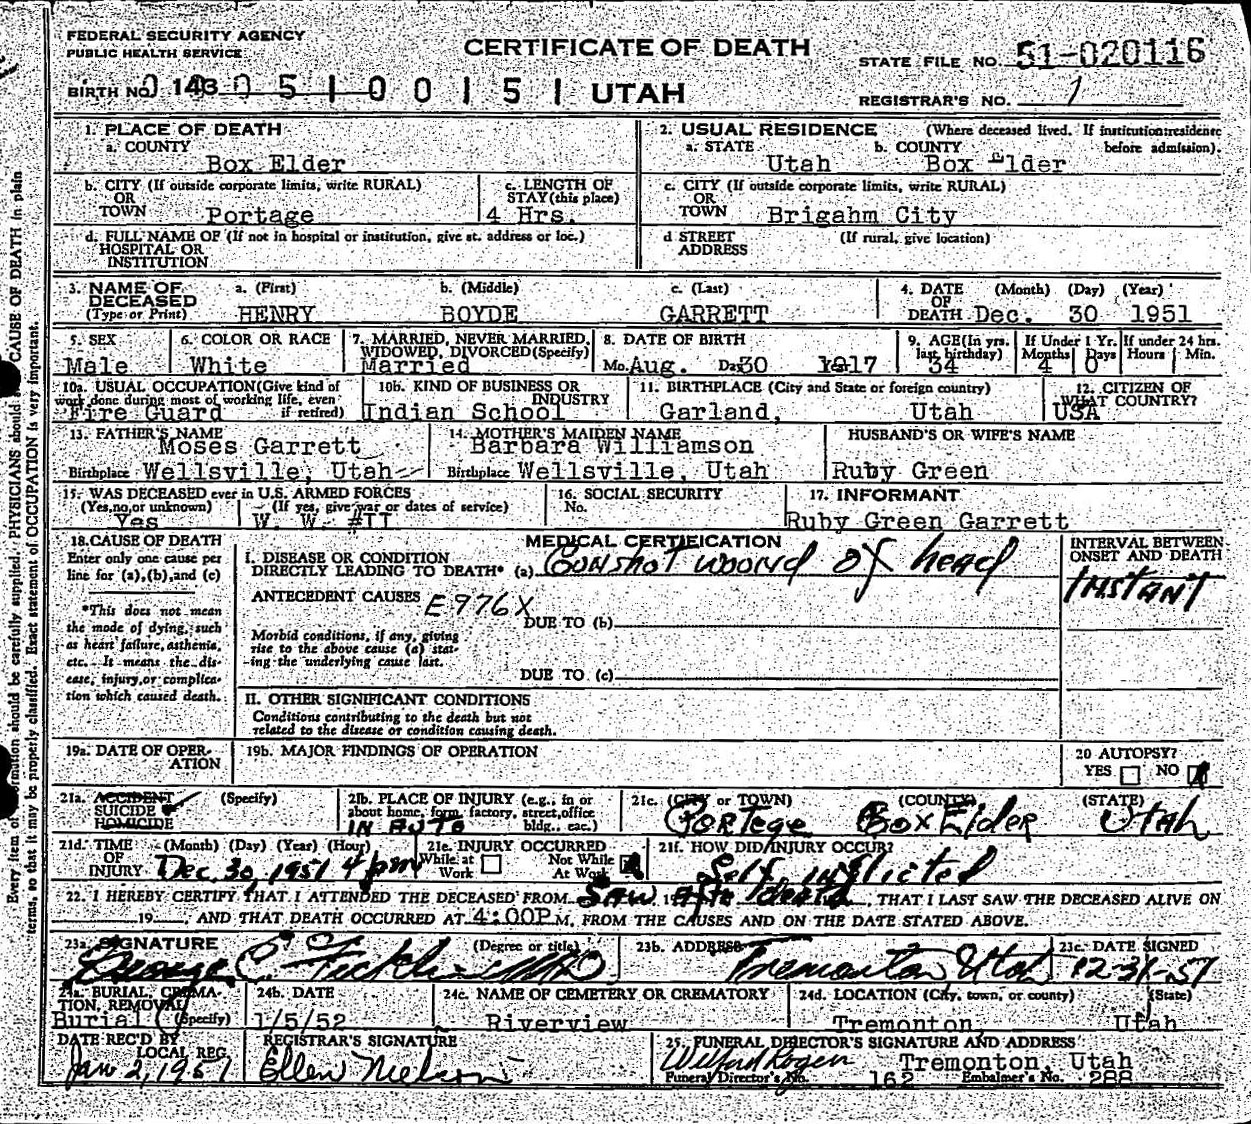 FEDERAL SECURITY AGENCY
PUBLIC HEALTH SERVICE
CERTIFICATE OF DEATH
STATE FILE NO. 51-020116
BIRTH NO. 143 0 5 1 0 0 1 5 1 UTAH
REGISTRAR'S NO. 1
1. PLACE OF DEATH
a. COUNTY
Box Elder
2. USUAL RESIDENCE (Where deceased lived. If institution: residence before admission).
a. STATE Utah b. COUNTY Box Elder
b. CITY (If outside corporate limits, write RURAL)
OR
TOWN Portage
c. LENGTH OF
STAY (this place)
4 Hrs.
c. CITY (If outside corporate limits, write RURAL)
OR
TOWN Brigahm City
d. FULL NAME OF (If not in hospital or institution, give st. address or loc.)
HOSPITAL OR
INSTITUTION
d STREET (If rural, give location)
ADDRESS
3. NAME OF DECEASED
(Type or Print)
a. (First) b. (Middle) c. (Last)
HENRY BOYDE GARRETT
4. DATE (Month) (Day) (Year)
OF
DEATH Dec. 30 1951
5. SEX
Male
6. COLOR OR RACE
White
7. MARRIED, NEVER MARRIED,
WIDOWED, DIVORCED (Specify)
Married
8. DATE OF BIRTH
Mo. Aug. Da. 30 1917
9. AGE (In yrs. last birthday)
34
If Under 1 Yr.
Months Days
4 0
If under 24 hrs.
Hours Min.
10a. USUAL OCCUPATION (Give kind of
work done during most of working life, even
if retired)
Fire Guard
10b. KIND OF BUSINESS OR
INDUSTRY
Indian School
11. BIRTHPLACE (City and State or foreign country)
Garland, Utah
12. CITIZEN OF
WHAT COUNTRY?
USA
13. FATHER'S NAME
Moses Garrett
Birthplace Wellsville, Utah
14. MOTHER'S MAIDEN NAME
Barbara Williamson
Birthplace Wellsville, Utah
HUSBAND'S OR WIFE'S NAME
Ruby Green
15. WAS DECEASED ever in U.S. ARMED FORCES
(Yes, no, or unknown) (If yes, give war or dates of service)
Yes W. W. #II
16. SOCIAL SECURITY
No.
17. INFORMANT
Ruby Green Garrett
18. CAUSE OF DEATH
Enter only one cause per
line for (a), (b), and (c)
*This does not mean
the mode of dying, such
as heart failure, asthenia,
etc. It means the dis-
ease, injury, or complica-
tion which caused death.
MEDICAL CERTIFICATION
I. DISEASE OR CONDITION
DIRECTLY LEADING TO DEATH* (a) Gunshot wound of head
INTERVAL BETWEEN
ONSET AND DEATH
Instant
ANTECEDENT CAUSES E976X
DUE TO (b)
Morbid conditions, if any, giving
rise to the above cause (a) stat-
ing the underlying cause last.
DUE TO (c)
II. OTHER SIGNIFICANT CONDITIONS
Conditions contributing to the death but not
related to the disease or condition causing death.
19a. DATE OF OPER-
ATION
19b. MAJOR FINDINGS OF OPERATION
20 AUTOPSY?
YES NO
21a. ACCIDENT (Specify)
SUICIDE
HOMICIDE
21b. PLACE OF INJURY (e.g., in or
about home, farm, factory, street, office
bldg., etc.)
IN AUTO
21c. (CITY or TOWN) (COUNTY) (STATE)
Portege Box Elder Utah
21d. TIME (Month) (Day) (Year) (Hour)
OF
INJURY Dec. 30, 1951 4 pm
21e. INJURY OCCURRED
While at Work Not While At Work
21f. HOW DID INJURY OCCUR?
Self inflicted
22. I HEREBY CERTIFY THAT I ATTENDED THE DECEASED FROM Saw 19 after death, THAT I LAST SAW THE DECEASED ALIVE ON
19 , AND THAT DEATH OCCURRED AT 4:00P M. FROM THE CAUSES AND ON THE DATE STATED ABOVE.
23a. SIGNATURE (Degree or title)
George C.
23b. ADDRESS
Tremonton Utah
23c. DATE SIGNED
12-31-51
24a. BURIAL, CREMA-
TION, REMOVAL
(Specify)
Burial
24b. DATE
1/5/52
24c. NAME OF CEMETERY OR CREMATORY
Riverview
24d. LOCATION (City, town, or county) (State)
Tremonton, Utah
DATE REC'D BY
LOCAL REG.
Jan 2, 1951
REGISTRAR'S SIGNATURE
Ellen Nielson
25. FUNERAL DIRECTOR'S SIGNATURE AND ADDRESS
Wilford Rogers Tremonton, Utah
Funeral Director's No. 162 Embalmer's No. 288
Every item of information should be carefully supplied. PHYSICIANS should state CAUSE OF DEATH in plain
terms, so that it may be properly classified. Exact statement of OCCUPATION is very important.